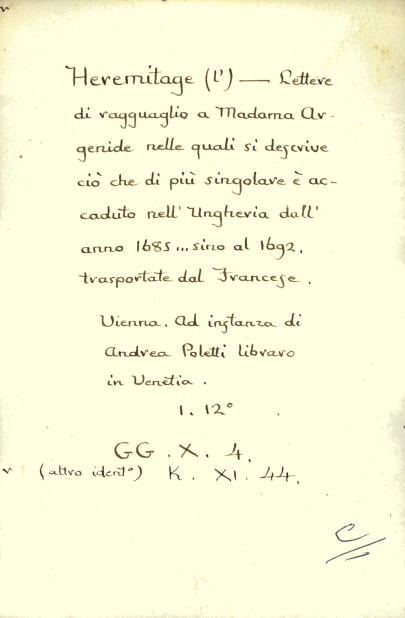 Heremitage (l') — Lettere
di ragguaglio a Madama Ar-
genide nelle quali si descrive
ciò che di più singolare è ac-
caduto nell' Ungheria dall'
anno 1685... sino al 1692,
trasportate dal Francese.
Vienna. Ad instanza di
Andrea Poletti libraro
in Venetia.
1. 12°
GG. X. 4.
v (altro ident°) K. XI. 44.